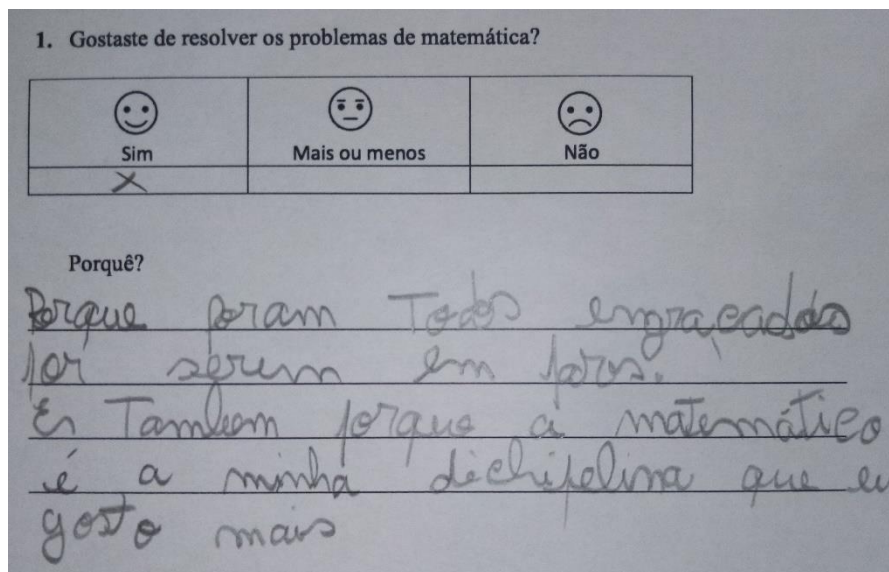 1. Gostaste de resolver os problemas de matemática?
Sim Mais ou menos Não
X
Porquê?
Porque foram Todos engraçados
por serem em
E Tambem porque a matemática
é a minha dichipelina que eu
gosto mais